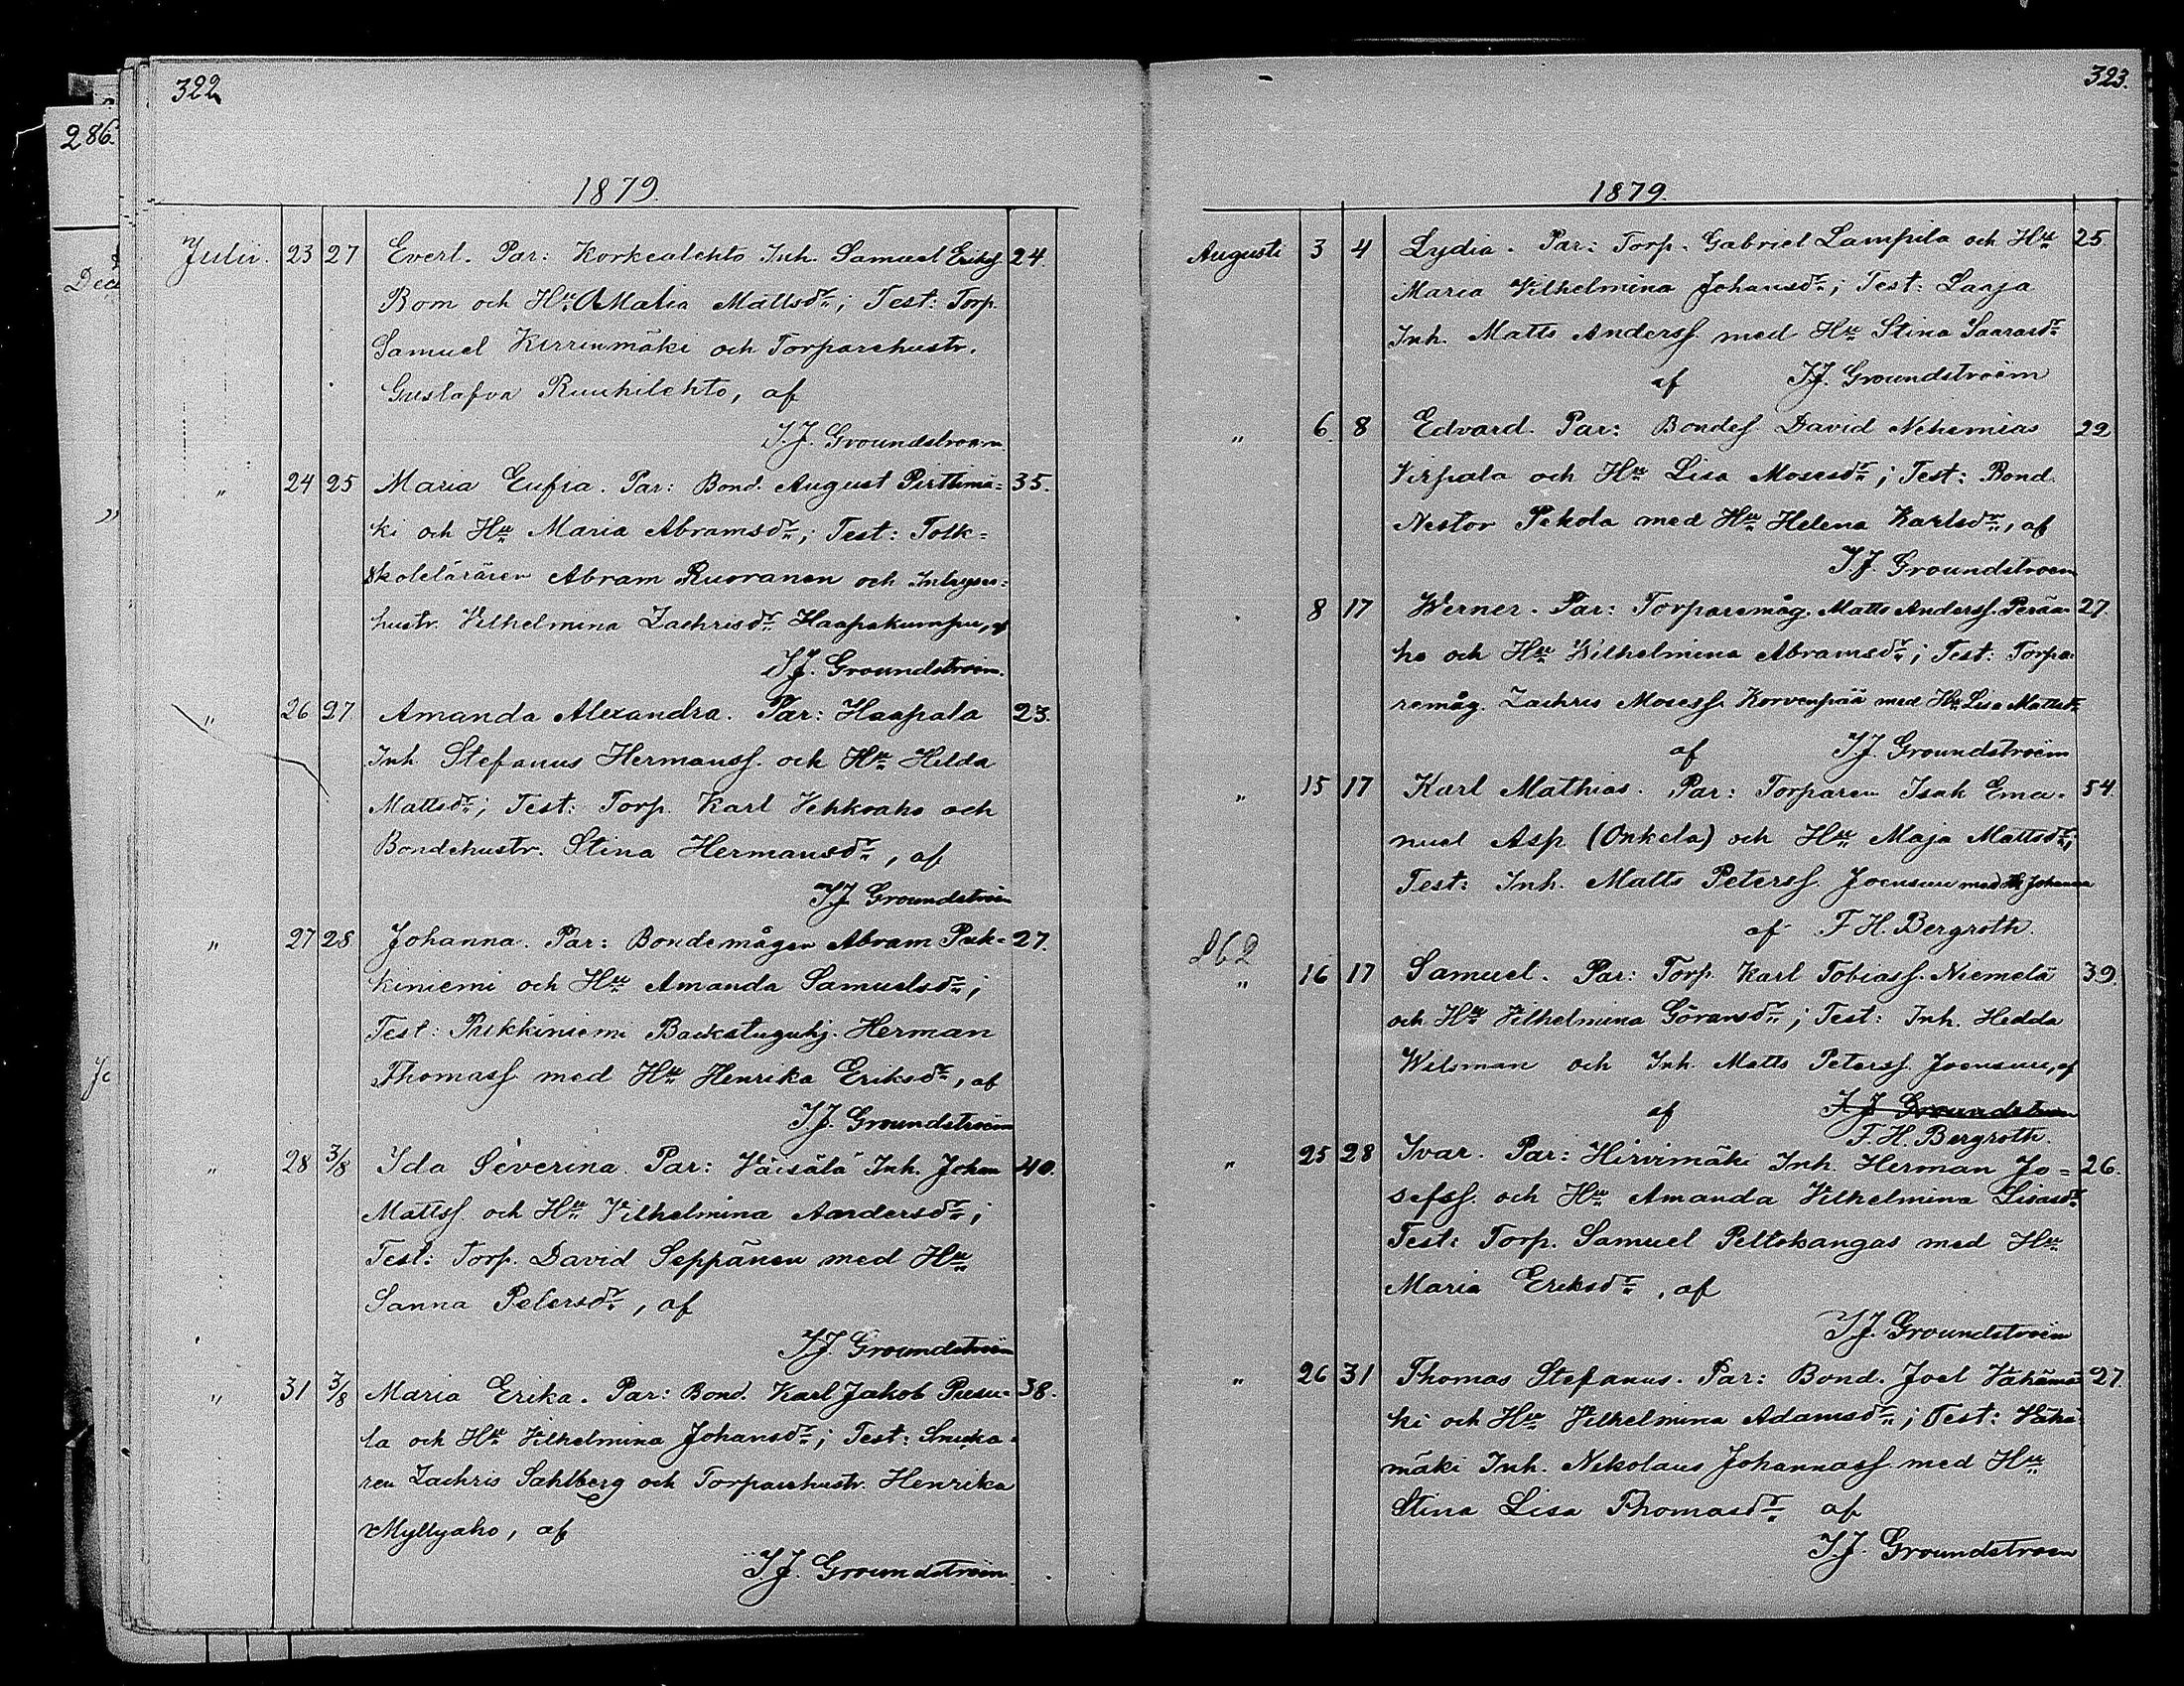 322
286.
1879.
Julii. 23 27 Evert. Par: Korkealehto Inh. Samuel Erikss 24.
Bom och Hu Maria Mattsdr; Test: Torp.
Samuel Kirrinmäki och Torparehustr.
Gustafva Ruuhilehto, af
I.J. Groundstroem
" 24 25 Maria Eufia. Par: Bond. August Pirttimä= 35.
ki och Hu Maria Abramsdr; Test: Folk=
skoleläraren Abram Ruoranen och Inhyses=
hustr. Vilhelmina Zachrisdr Haapakumpu, af
I.J. Groundstroem.
" 26 27. Amanda Alexandra. Par: Haapala 23.
Inh Stefanus Hermanss. och Hu Hilda
Mattsdr; Test: Torp. Karl Vehkoaho och
Bondehustr. Stina Hermansdr, af
I.J. Groundstroem
" 27 28 Johanna. Par: Bondemågen Abram Puk= 27.
kiniemi och Hu Amanda Samuelsdr;
Test: Pukkiniemi Backstuguhj. Herman
Thomass med Hu Henrika Eriksdr, af
I.J. Groundstroem
" 28 3/8 Ida Severina. Par: Väisälä Inh. Johan 40.
Mattss. och Hu Vilhelmina Andersdr;
Test: Torp. David Seppänen med Hu
Sanna Petersdr, af
I.J. Groundstroem
" 31 3/8 Maria Erika. Par: Bond. Karl Jakob Pusu= 38.
la och Hu Vilhelmina Johansdr; Test: Snicka=
ren Zachris Sahlberg och Torparehustr. Henrika
Myllyaho, af
I.J. Groundstroem
323.
1879.
Augusti 3 4 Lydia. Par: Torp. Gabriel Lampila och Hu 25
Maria Vilhelmina Johansdr; Test: Laaja
Inh. Matts Anderss. med Hu Stina Saarasdr
af I.J. Groundstroem
" 6. 8 Edvard. Par: Bondes David Nehemias 22
Virpala och Hu Lisa Mosesdr; Test: Bond.
Nestor Pekola med Hu Helena Karlsdr, af
I.J. Groundstroem
8 17 Werner. Par: Torparemåg. Matts Anderss. Perää= 27.
ho och Hu Wilhelmina Abramsdr; Test: Torpa=
remåg. Zachris Mosess. Korvenpää med Hu Lisa Mattsdr
af I.J. Groundstroem
" 15 17 Karl Mathias. Par: Torparen Isak Ema= 54
nuel Asp (Onkela) och Hu Maja Mattsdr;
Test: Inh. Matts Peterss Joensuu med Hu Johanna
af F.H. Bergroth.
262
" 16 17 Samuel. Par: Torp. Karl Tobiass. Niemelä 39.
och Hu Vilhelmina Göransdr; Test: Inh. Hedda
Wilsman och Inh. Matts Peterss. Joensuu, af
af I.J. Groundstroem
F.H. Bergroth.
" 25 28 Ivar. Par: Hirvimäki Inh. Herman Jo= 26.
sefss. och Hu Amanda Vilhelmina Lisasdr
Test: Torp. Samuel Peltokangas med Hu
Maria Eriksdr, af
I.J. Groundstroem
" 26 31 Thomas Stefanus. Par: Bond. Joel Vähämä= 27.
ki och Hu Vilhelmina Adamsdr; Test: Vähä
mäki Inh. Nikolaus Johannass. med Hu
Stina Lisa Thomasdr af
I.J. Groundstroem